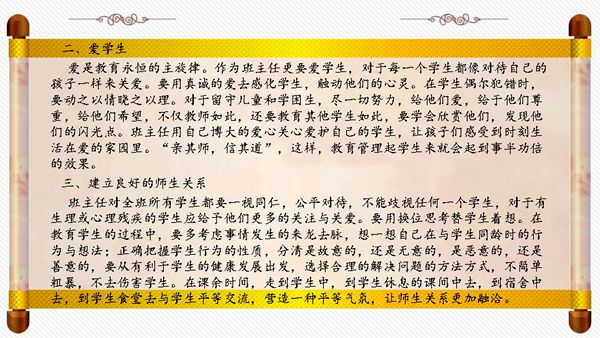 二、爱学生
爱是教育永恒的主旋律。作为班主任更要爱学生，对于每一个学生都像对待自己的
孩子一样来关爱。要用真诚的爱去感化学生，触动他们的心灵。在学生偶尔犯错时，
要动之以情晓之以理。对于留守儿童和学困生，尽一切努力，给他们爱，给于他们尊
重，给他们希望，不仅教师如此，还要教育其他学生如此，要学会欣赏他们，发现他
们的闪光点。班主任用自己博大的爱心关心爱护自己的学生，让孩子们感受到时刻生
活在爱的家园里。“亲其师，信其道”，这样，教育管理起学生来就会起到事半功倍
的效果。
三、建立良好的师生关系
班主任对全班所有学生都要一视同仁，公平对待，不能歧视任何一个学生，对于有
生理或心理残疾的学生应给于他们更多的关注与关爱。要用换位思考替学生着想。在
教育学生的过程中，要多考虑事情发生的来龙去脉，想一想自己在与学生同龄时的行
为与想法；正确把握学生行为的性质，分清是故意的，还是无意的，是恶意的，还是
善意的，要从有利于学生的健康发展出发，选择合理的解决问题的方法方式，不简单
粗暴，不去伤害学生。在课余时间，走到学生中，到学生休息的课间中去，到宿舍中
去，到学生食堂去与学生平等交流，营造一种平等气氛，让师生关系更加融洽。